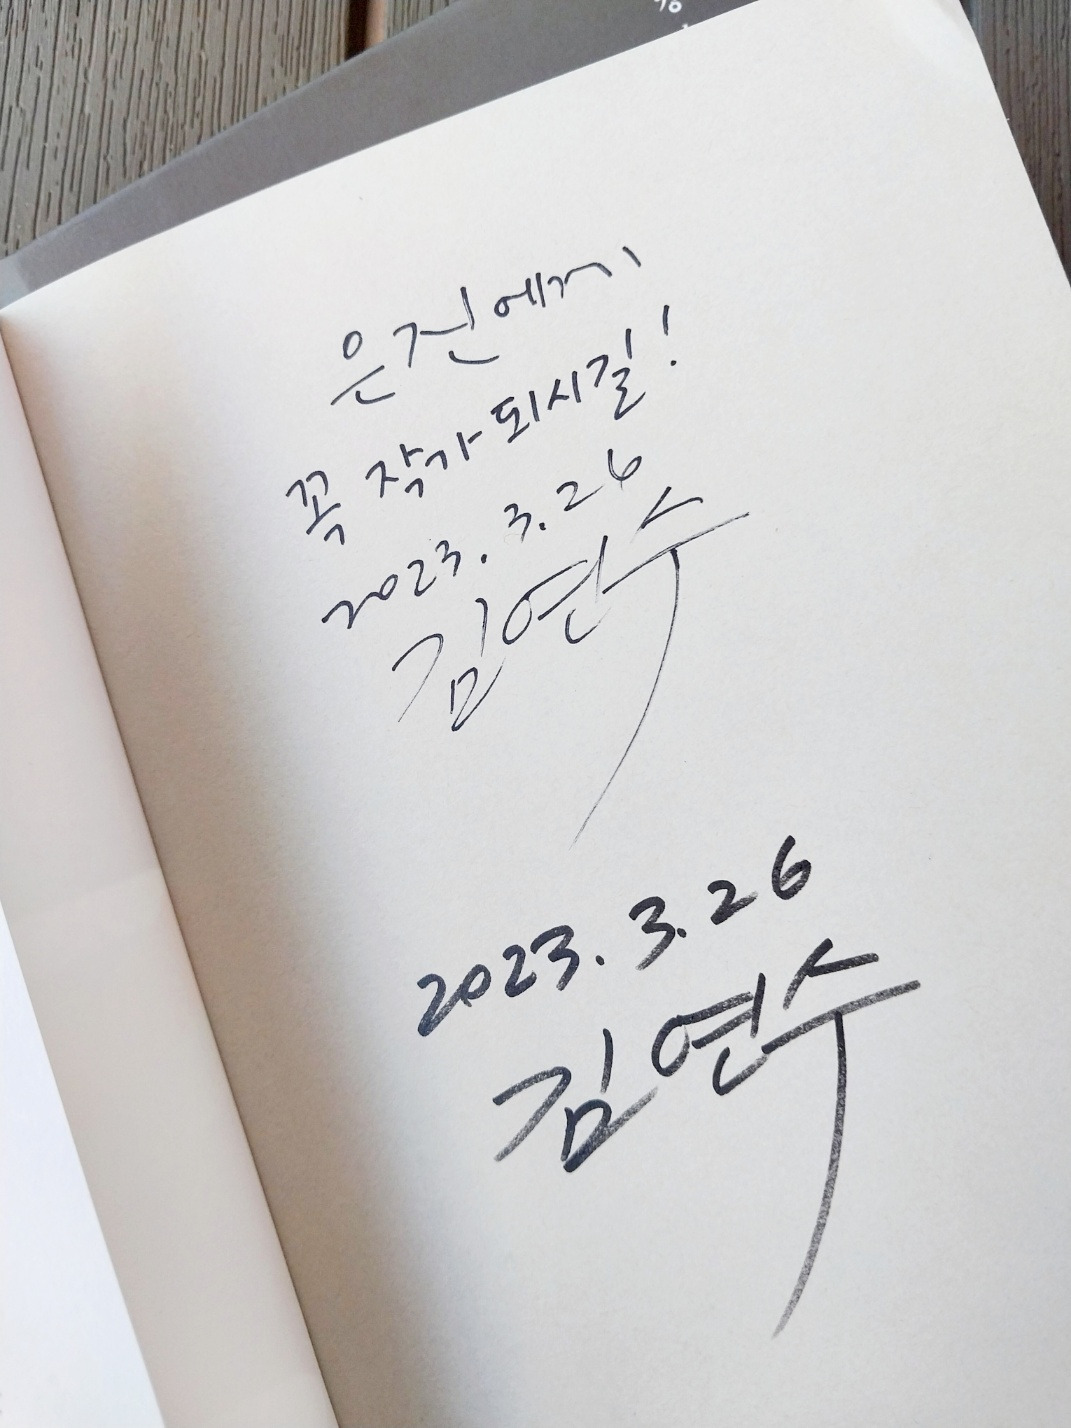 은진에게
꼭 작가 되시길!
2023. 3. 26
김연수
2023. 3. 26
김연수